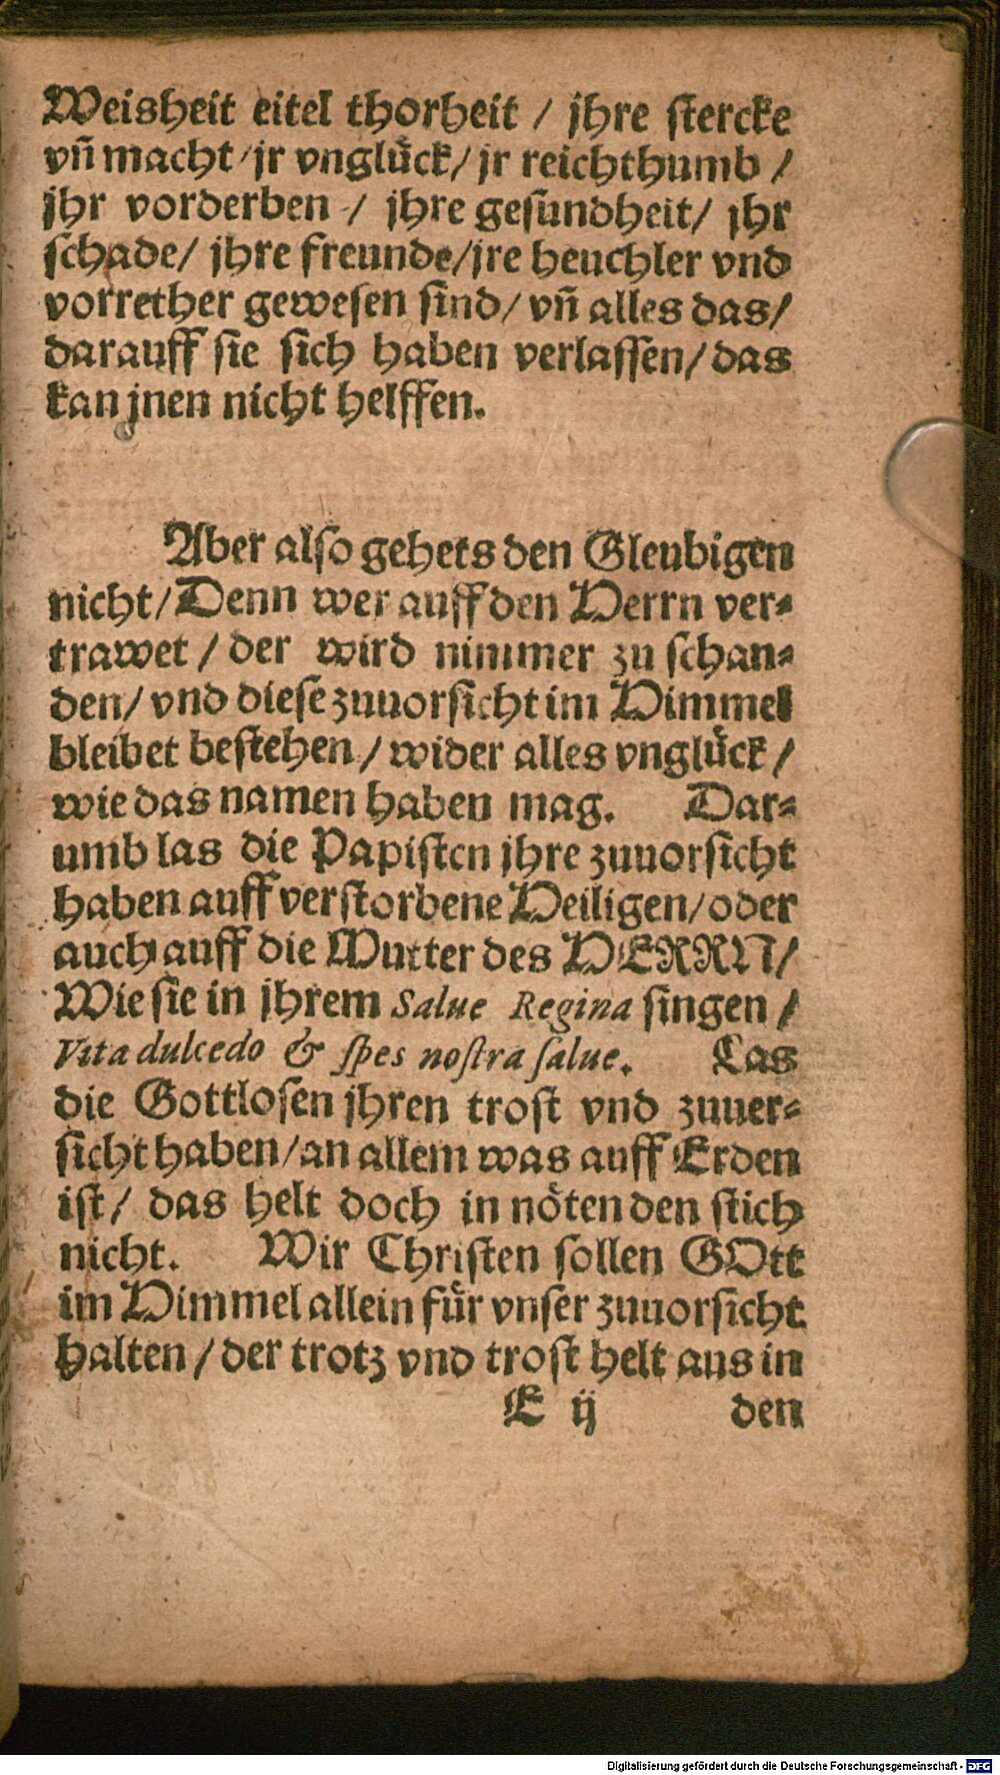 Weisheit eitel thorheit / jhre stercke
vñ macht / jr vnglück / jr reichthumb /
jhr vorderben / jhre gesundheit / jhr
schade / jhre freunde / jre heuchler vnd
vorrether gewesen sind / vñ alles das /
darauff sie sich haben verlassen / das
kan jnen nicht helffen.
Aber also gehets den Gleubigen
nicht / Denn wer auff den Herrn ver=
trawet / der wird nimmer zu schan=
den / vnd diese zuuorsicht im Himmel
bleibet bestehen / wider alles vnglück /
wie das namen haben mag. Dar=
umb las die Papisten jhre zuuorsicht
haben auff verstorbene Heiligen / oder
auch auff die Mutter des HERRN /
Wie sie in jhrem Salue Regina singen /
Vita dulcedo & spes nostra salue. Las
die Gottlosen jhren trost vnd zuuer=
sicht haben / an allem was auff Erden
ist / das helt doch in nöten den stich
nicht. Wir Christen sollen GOtt
im Himmel allein für vnser zuuorsicht
halten / der trotz vnd trost helt aus in
E ij den
Digitalisierung gefördert durch die Deutsche Forschungsgemeinschaft - DFG